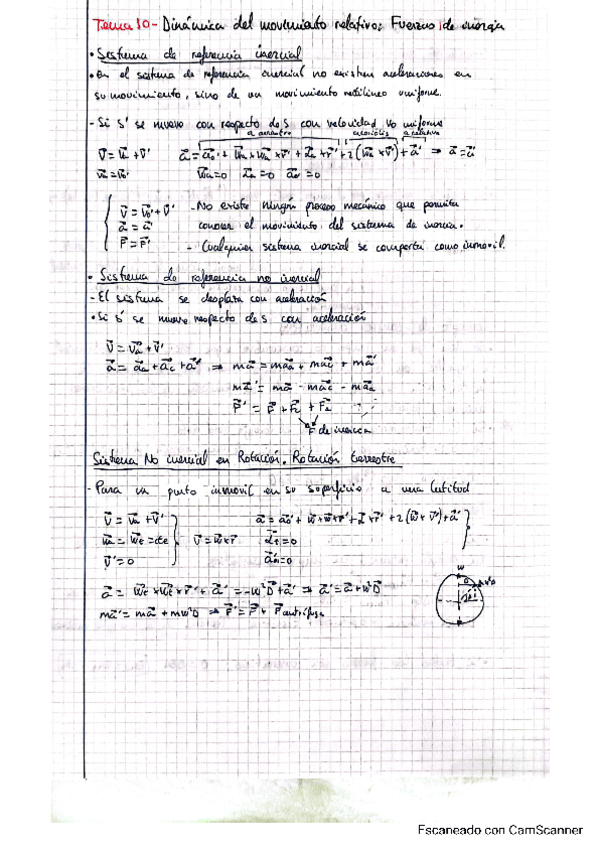 Tema 10 - Dinámica del movimiento relativo: Fuerzas de inercia
• Sistema de referencia inercial
• En el sistema de referencia inercial no existen aceleraciones en
su movimiento, sino de un movimiento rectilíneo uniforme.
- Si S' se mueve con respecto de S con velocidad Vo uniforme
a arrastre a coriolis a relativa
V⃗ = V⃗a + V⃗' a⃗ = a⃗o' + w⃗a × w⃗a × r⃗' + α⃗a × r⃗' + 2(w⃗a × v⃗') + a⃗' ⇒ a⃗ = a⃗'
w⃗a = 0 α⃗a = 0 a⃗o' = 0
V⃗ = V⃗o' + V⃗' - No existe ningún proceso mecánico que permita
a⃗ = a⃗' conocer el movimiento del sistema de inercia.
F⃗ = F⃗' - Cualquier sistema inercial se comporta como inmovil.
• Sistema de referencia no inercial
- El sistema se desplaza con aceleración
• Si S' se mueve respecto de S con aceleración
V⃗ = V⃗a + V⃗'
a⃗ = a⃗a + a⃗c + a⃗' ⇒ ma⃗ = ma⃗a + ma⃗c + ma⃗'
ma⃗' = ma⃗ - ma⃗c - ma⃗a
F⃗' = F⃗ + F⃗c + F⃗a
F de inercia
Sistema No inercial en Rotación. Rotación terrestre
- Para un punto inmovil en su superficie a una latitud
V⃗ = V⃗a + V⃗' a⃗ = a⃗o' + w⃗ × w⃗ × r⃗' + α⃗ × r⃗' + 2(w⃗ × v⃗') + a⃗'
w⃗a = w⃗t = cte V⃗ = w⃗ × r⃗ α⃗t = 0
V⃗' = 0 a⃗o' = 0
w
a⃗ = w⃗t × w⃗t × r⃗' + a⃗' = -w²D⃗ + a⃗' ⇒ a⃗' = a⃗ + w²D⃗
ma⃗' = ma⃗ + mw²D⃗ ⇒ F⃗' = F⃗ + F⃗ centrífuga
Escaneado con CamScanner